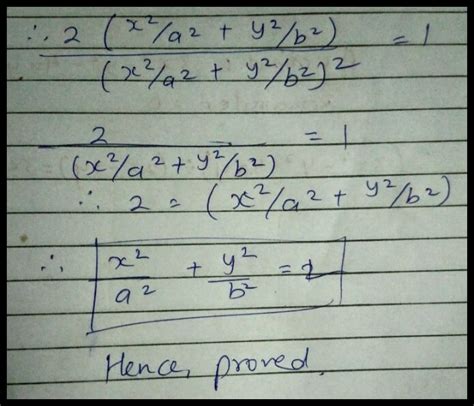 ∴ 2 (x²/a² + y²/b²) / (x²/a² + y²/b²)² = 1
2 / (x²/a² + y²/b²) = 1
∴ 2 = (x²/a² + y²/b²)
∴ x²/a² + y²/b² = 2
Hence, proved.